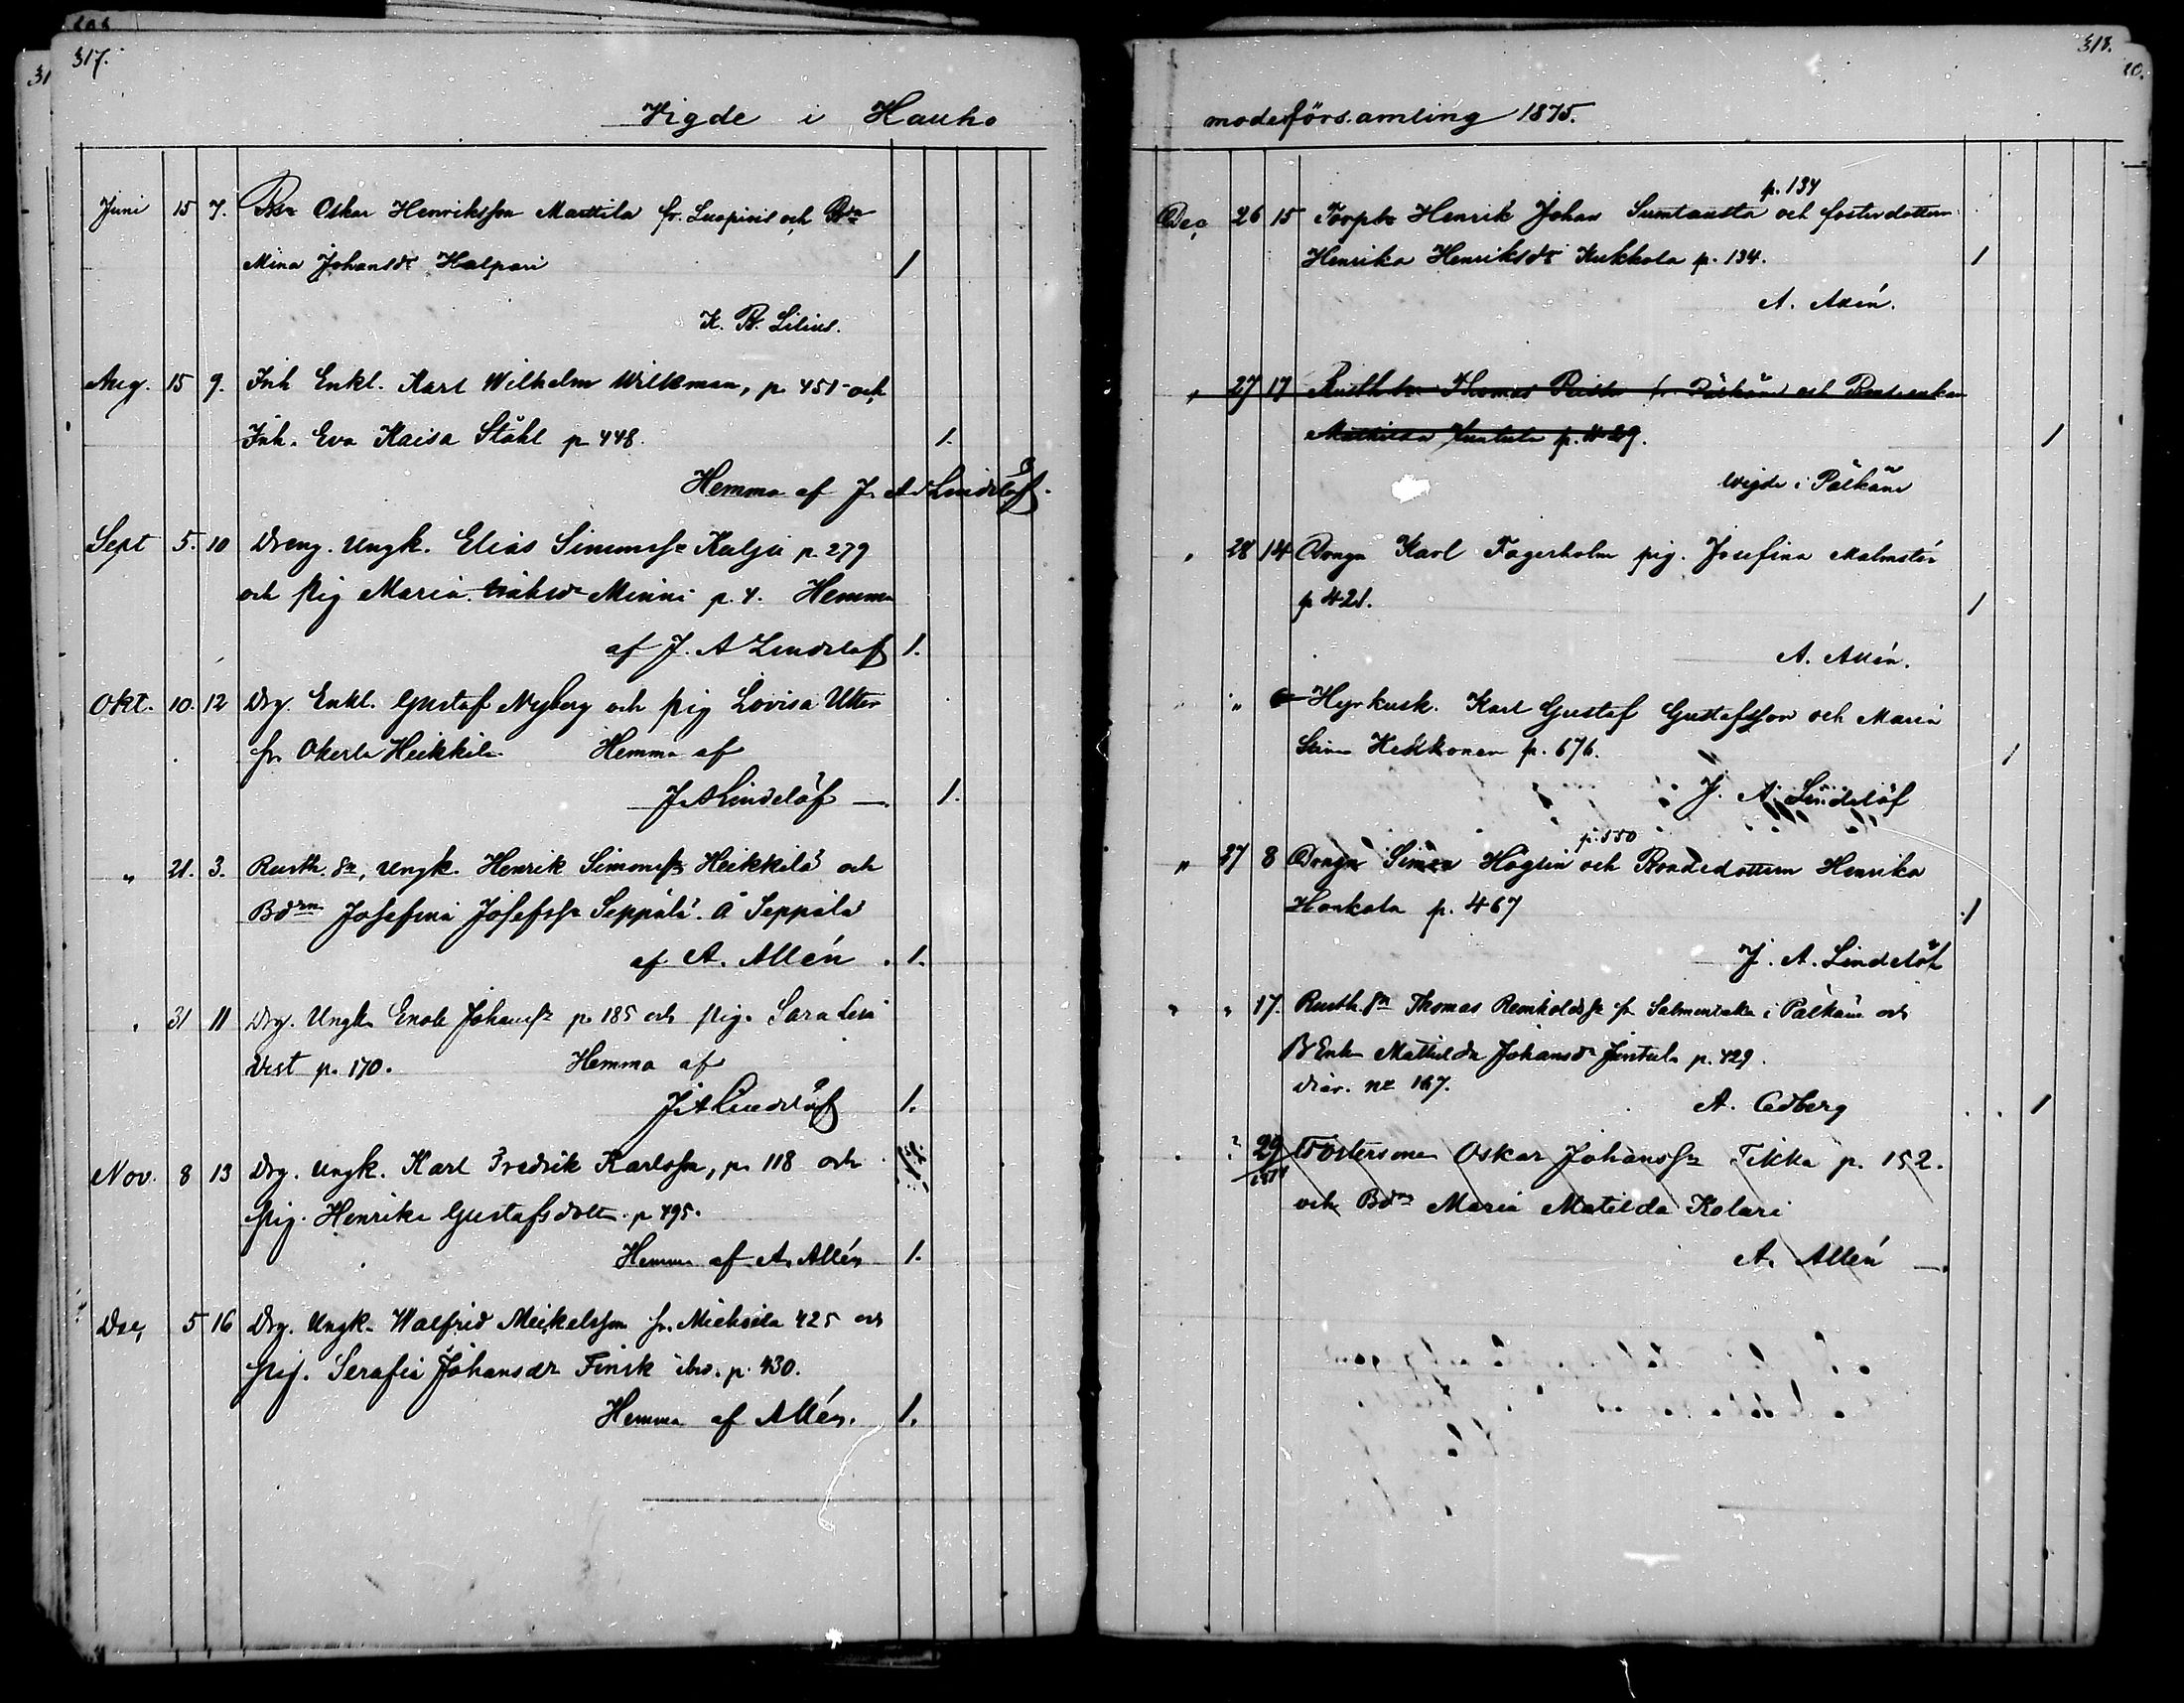 317.
Vigde i Hauho
Juni 15 7. Bs Oskar Henriksson Mattila fr. Luopiois och Bdr
Mina Johansdr Halpari 1
K. R. Lilius.
Aug. 15 9. Inh Enkl. Karl Wilhelm Wilkman, p 451 och
Inh. Eva Kaisa Ståhl p 448. 1.
Hemma af J. A Lindelöf.
Sept 5. 10 Dreng. Ungk. Elias Simonss Kulju p. 279
och pig Maria Minni p. 4. Hemma
af J. A Lindelöf 1.
Okt. 10. 12 Drg. Enkl. Gustaf Nyberg och pig Lovisa Utter
fr. Okerla Heikkilä. Hemma af
J A Lindelöf 1.
" 21. 3. Rusth. sn, Ungk. Henrik Simonss Heikkilä och
Bdrn Josefina Josefs Seppälä. Å Seppälä
af A. Allén. 1.
" 31 11 Drg. Ungk. Enok Johanss p 185 och pig. Sara Lisa
Vest p. 170. Hemma af
J A Lindelöf 1.
Nov. 8 13 Drg. Ungk. Karl Fredrik Karlsson, p. 118 och
pig. Henrika Gustafsdotter p 495.
Hemma af A. Allén 1.
Dec, 5 16 Drg. Ungk. Walfrid Mickelsson fr. Michoila 425 och
pig. Serafia Johansdr Finik ibid. p. 430.
Hemma af Allén. 1.
318.
moderförsamling 1875.
p. 134
Dec 26 15 Torp Henrik Johan Sumtausta och fosterdottern
Henrika Henriksdr Kukkola p. 134. 1
A. Allén.
" 27 17 Rusth Thomas fr. Pälkäne och Bondeenkan
Mathilda Juntula p. 429. 1
wigde i Pälkäne
" 28 14 Drengn Karl Fagerholm pig. Josefina Malmstén
p 421. 1
A. Allén.
" 6 Hyrkusk. Karl Gustaf Gustafsson och Maria
Stina Heikkonen p. 676. 1
J. A. Lindelöf
p. 550
" 27 8 Drengn Simon Höglin och Bondedottern Henrika
Honkala p. 467 1
J. A. Lindelöf
" " 17. Rusth. sn Thomas Reinholdss fr. Salmentaka i Pälkäne och
B Enk Mathilda Johansdr Juntula p. 429.
diar. no 167.
A. Cedberg 1
" ? 29 Fostersonen Oskar Johanss Tikka p. 152.
och Bdrn Maria Matilda Kolari
A. Allén